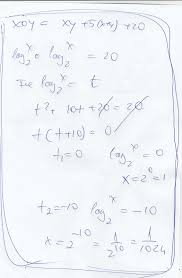 x∘y = xy + 5(x+y) + 20
log₂ˣ ∘ log₂ˣ = 20
log₂ˣ = t
t² + 10t + 20 = 20
t(t+10) = 0
t₁ = 0 log₂ˣ = 0
x = 2⁰ = 1
t₂ = -10 log₂ˣ = -10
x = 2⁻¹⁰ = 1/2¹⁰ = 1/1024